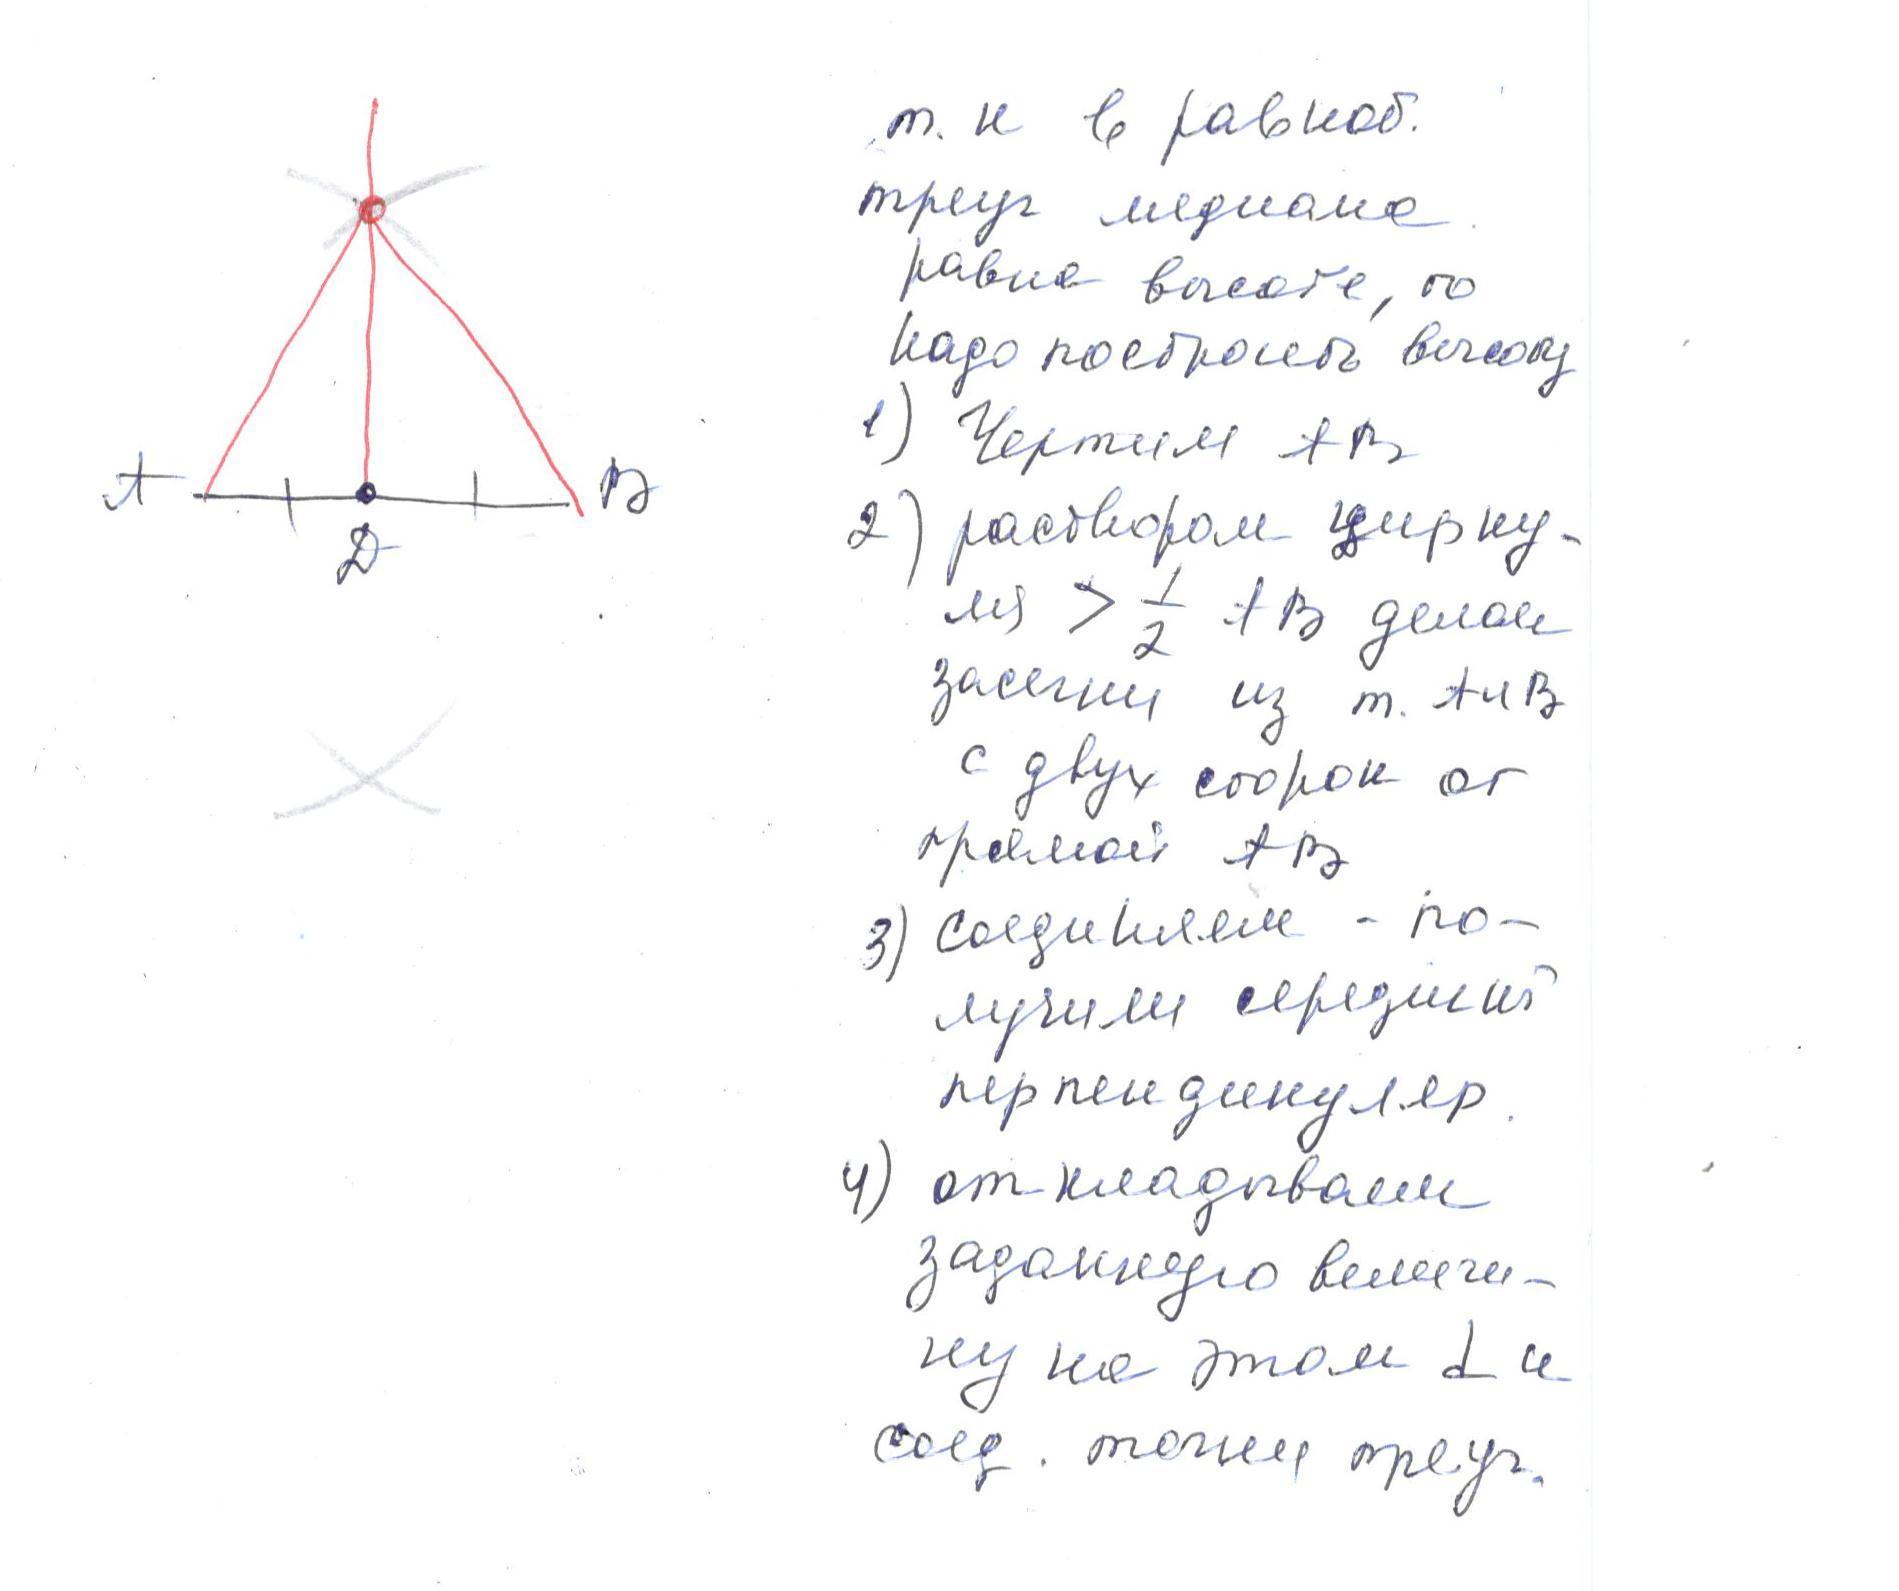 А
В
D
т. к в равноб.
треуг медиана
равна высоте, то
надо построить высоту
1) Чертим АВ
2) раствором цирку-
ля > 1/2 АВ делаем
засечки из т. А и В
с двух сторон от
прямой АВ
3) Соединяем - по-
лучили серединй
перпендикуляр.
4) откладываем
заданную величи-
ну на этом ⊥ и
соед. точки треуг.